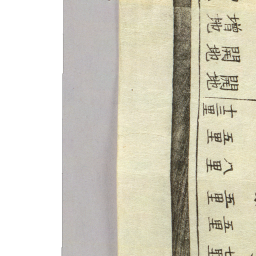 七里
五里
五里
八里
五里
十三里
地
開地
増地